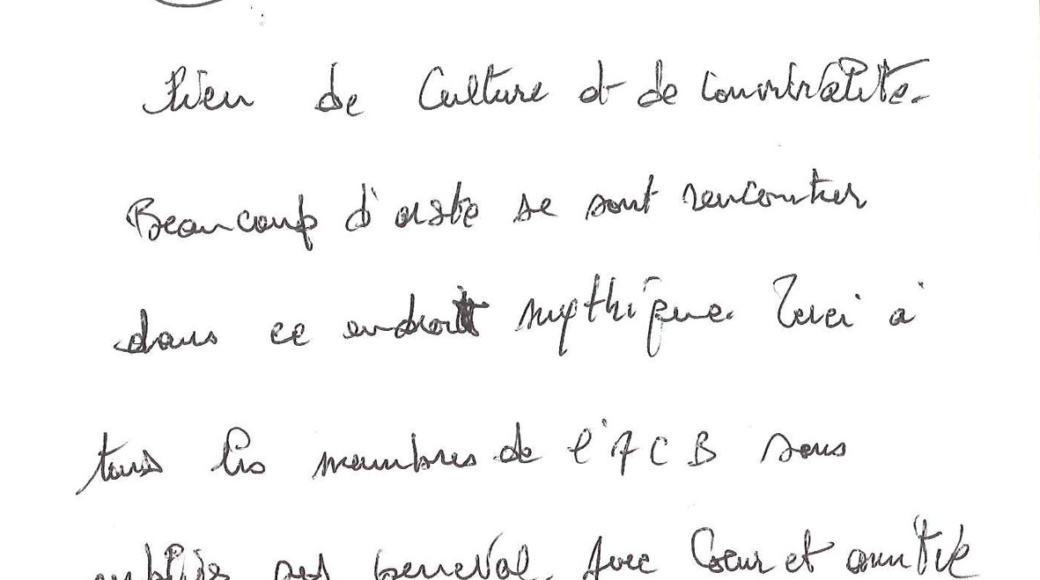 Lieu de Culture et de convivialité.
Beaucoup d'artiste se sont rencontrer
dans ce endroit mythique. Merci à
tous les membres de l'ACB sans
oublier ses benevol. Avec Cœur et amitié